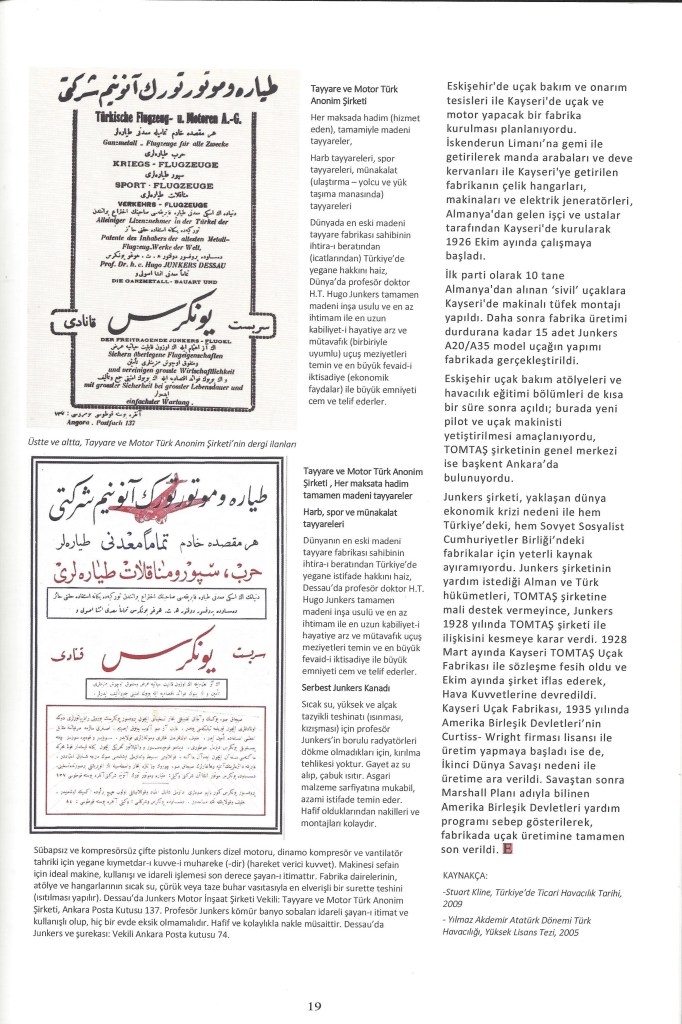 طياره و موتور تورك آنونيم شركتى
Türkische Flugzeug- u. Motoren A.-G.
هر مقصده خادم تماميله معدنى طياره‌لر
Ganzmetall - Flugzeuge für alle Zwecke
حرب طياره‌لرى
KRIEGS - FLUGZEUGE
سپور طياره‌لرى
SPORT - FLUGZEUGE
مناقلات طياره‌لرى
VERKEHRS - FLUGZEUGE
Alleiniger Lizenznehmer in der Türkei der
Patente des Inhabers der ältesten Metall-
Flugzeug-Werke der Welt,
Prof. Dr. h. c. Hugo JUNKERS DESSAU
DIE GANZMETALL - BAUART UND
سربست يونكرس قانادى
DER FREITRAGENDE JUNKERS - FLUGEL
Sichern überlegene Flugeigenschaften
und vereinigen grosse Wirtschaftlichkeit
mit grosser Sicherheit bei grosser Lebensdauer und
einfachster Wartung.
Angora. Postfach 137
Üstte ve altta, Tayyare ve Motor Türk Anonim Şirketi'nin dergi ilanları
طياره و موتور تورك آنونيم شركتى
هر مقصده خادم تماماً معدنى طياره‌لر
حرب، سپور و مناقلات طياره‌لرى
سربست يونكرس قنادى
Tayyare ve Motor Türk
Anonim Şirketi
Her maksada hadim (hizmet
eden), tamamiyle madeni
tayyareler,
Harb tayyareleri, spor
tayyareleri, münakalat
(ulaştırma – yolcu ve yük
taşıma manasında)
tayyareleri
Dünyada en eski madeni
tayyare fabrikası sahibinin
ihtira-ı beratından
(icatlarından) Türkiye'de
yegane hakkını haiz,
Dünya'da profesör doktor
H.T. Hugo Junkers tamamen
madeni inşa usulu ve en az
ihtimam ile en uzun
kabiliyet-i hayatiye arz ve
mütavafık (birbiriyle
uyumlu) uçuş meziyetleri
temin ve en büyük fevaid-i
iktisadiye (ekonomik
faydalar) ile büyük emniyeti
cem ve telif ederler.
Tayyare ve Motor Türk Anonim
Şirketi , Her maksata hadim
tamamen madeni tayyareler
Harb, spor ve münakalat
tayyareleri
Dünyanın en eski madeni
tayyare fabrikası sahibinin
ihtira-ı beratından Türkiye'de
yegane istifade hakkını haiz,
Dessau'da profesör doktor H.T.
Hugo Junkers tamamen
madeni inşa usulü ve en az
ihtimam ile en uzun kabiliyet-i
hayatiye arz ve mütavafık uçuş
meziyetleri temin ve en büyük
fevaid-i iktisadiye ile büyük
emniyeti cem ve telif ederler.
Serbest Junkers Kanadı
Sıcak su, yüksek ve alçak
tazyikli teshinatı (ısınması,
kızışması) için profesör
Junkers'in borulu radyatörleri
dökme olmadıkları için, kırılma
tehlikesi yoktur. Gayet az su
alıp, çabuk ısıtır. Asgari
malzeme sarfiyatına mukabil,
azami istifade temin eder.
Hafif olduklarından nakilleri ve
montajları kolaydır.
Sübapsız ve kompresörsüz çifte pistonlu Junkers dizel motoru, dinamo kompresör ve vantilatör
tahriki için yegane kıymetdar-ı kuvve-i muhareke (-dir) (hareket verici kuvvet). Makinesi sefain
için ideal makine, kullanışı ve idareli işlemesi son derece şayan-ı itimattır. Fabrika dairelerinin,
atölye ve hangarlarının sıcak su, çürük veya taze buhar vasıtasıyla en elverişli bir surette teshini
(ısıtılması yapılır). Dessau'da Junkers Motor İnşaat Şirketi Vekili: Tayyare ve Motor Türk Anonim
Şirketi, Ankara Posta Kutusu 137. Profesör Junkers kömür banyo sobaları idareli şayan-ı itimat ve
kullanışlı olup, hiç bir evde eksik olmamalıdır. Hafif ve kolaylıkla nakle müsaittir. Dessau'da
Junkers ve şurekası: Vekili Ankara Posta kutusu 74.
Eskişehir'de uçak bakım ve onarım
tesisleri ile Kayseri'de uçak ve
motor yapacak bir fabrika
kurulması planlanıyordu.
İskenderun Limanı'na gemi ile
getirilerek manda arabaları ve deve
kervanları ile Kayseri'ye getirilen
fabrikanın çelik hangarları,
makinaları ve elektrik jeneratörleri,
Almanya'dan gelen işçi ve ustalar
tarafından Kayseri'de kurularak
1926 Ekim ayında çalışmaya
başladı.
İlk parti olarak 10 tane
Almanya'dan alınan 'sivil' uçaklara
Kayseri'de makinalı tüfek montajı
yapıldı. Daha sonra fabrika üretimi
durdurana kadar 15 adet Junkers
A20/A35 model uçağın yapımı
fabrikada gerçekleştirildi.
Eskişehir uçak bakım atölyeleri ve
havacılık eğitimi bölümleri de kısa
bir süre sonra açıldı; burada yeni
pilot ve uçak makinisti
yetiştirilmesi amaçlanıyordu,
TOMTAŞ şirketinin genel merkezi
ise başkent Ankara'da
bulunuyordu.
Junkers şirketi, yaklaşan dünya
ekonomik krizi nedeni ile hem
Türkiye'deki, hem Sovyet Sosyalist
Cumhuriyetler Birliği'ndeki
fabrikalar için yeterli kaynak
ayıramıyordu. Junkers şirketinin
yardım istediği Alman ve Türk
hükümetleri, TOMTAŞ şirketine
mali destek vermeyince, Junkers
1928 yılında TOMTAŞ şirketi ile
ilişkisini kesmeye karar verdi. 1928
Mart ayında Kayseri TOMTAŞ Uçak
Fabrikası ile sözleşme fesih oldu ve
Ekim ayında şirket iflas ederek,
Hava Kuvvetlerine devredildi.
Kayseri Uçak Fabrikası, 1935 yılında
Amerika Birleşik Devletleri'nin
Curtiss- Wright firması lisansı ile
üretim yapmaya başladı ise de,
İkinci Dünya Savaşı nedeni ile
üretime ara verildi. Savaştan sonra
Marshall Planı adıyla bilinen
Amerika Birleşik Devletleri yardım
programı sebep gösterilerek,
fabrikada uçak üretimine tamamen
son verildi. E
KAYNAKÇA:
-Stuart Kline, Türkiye'de Ticari Havacılık Tarihi,
2009
- Yılmaz Akdemir Atatürk Dönemi Türk
Havacılığı, Yüksek Lisans Tezi, 2005
19